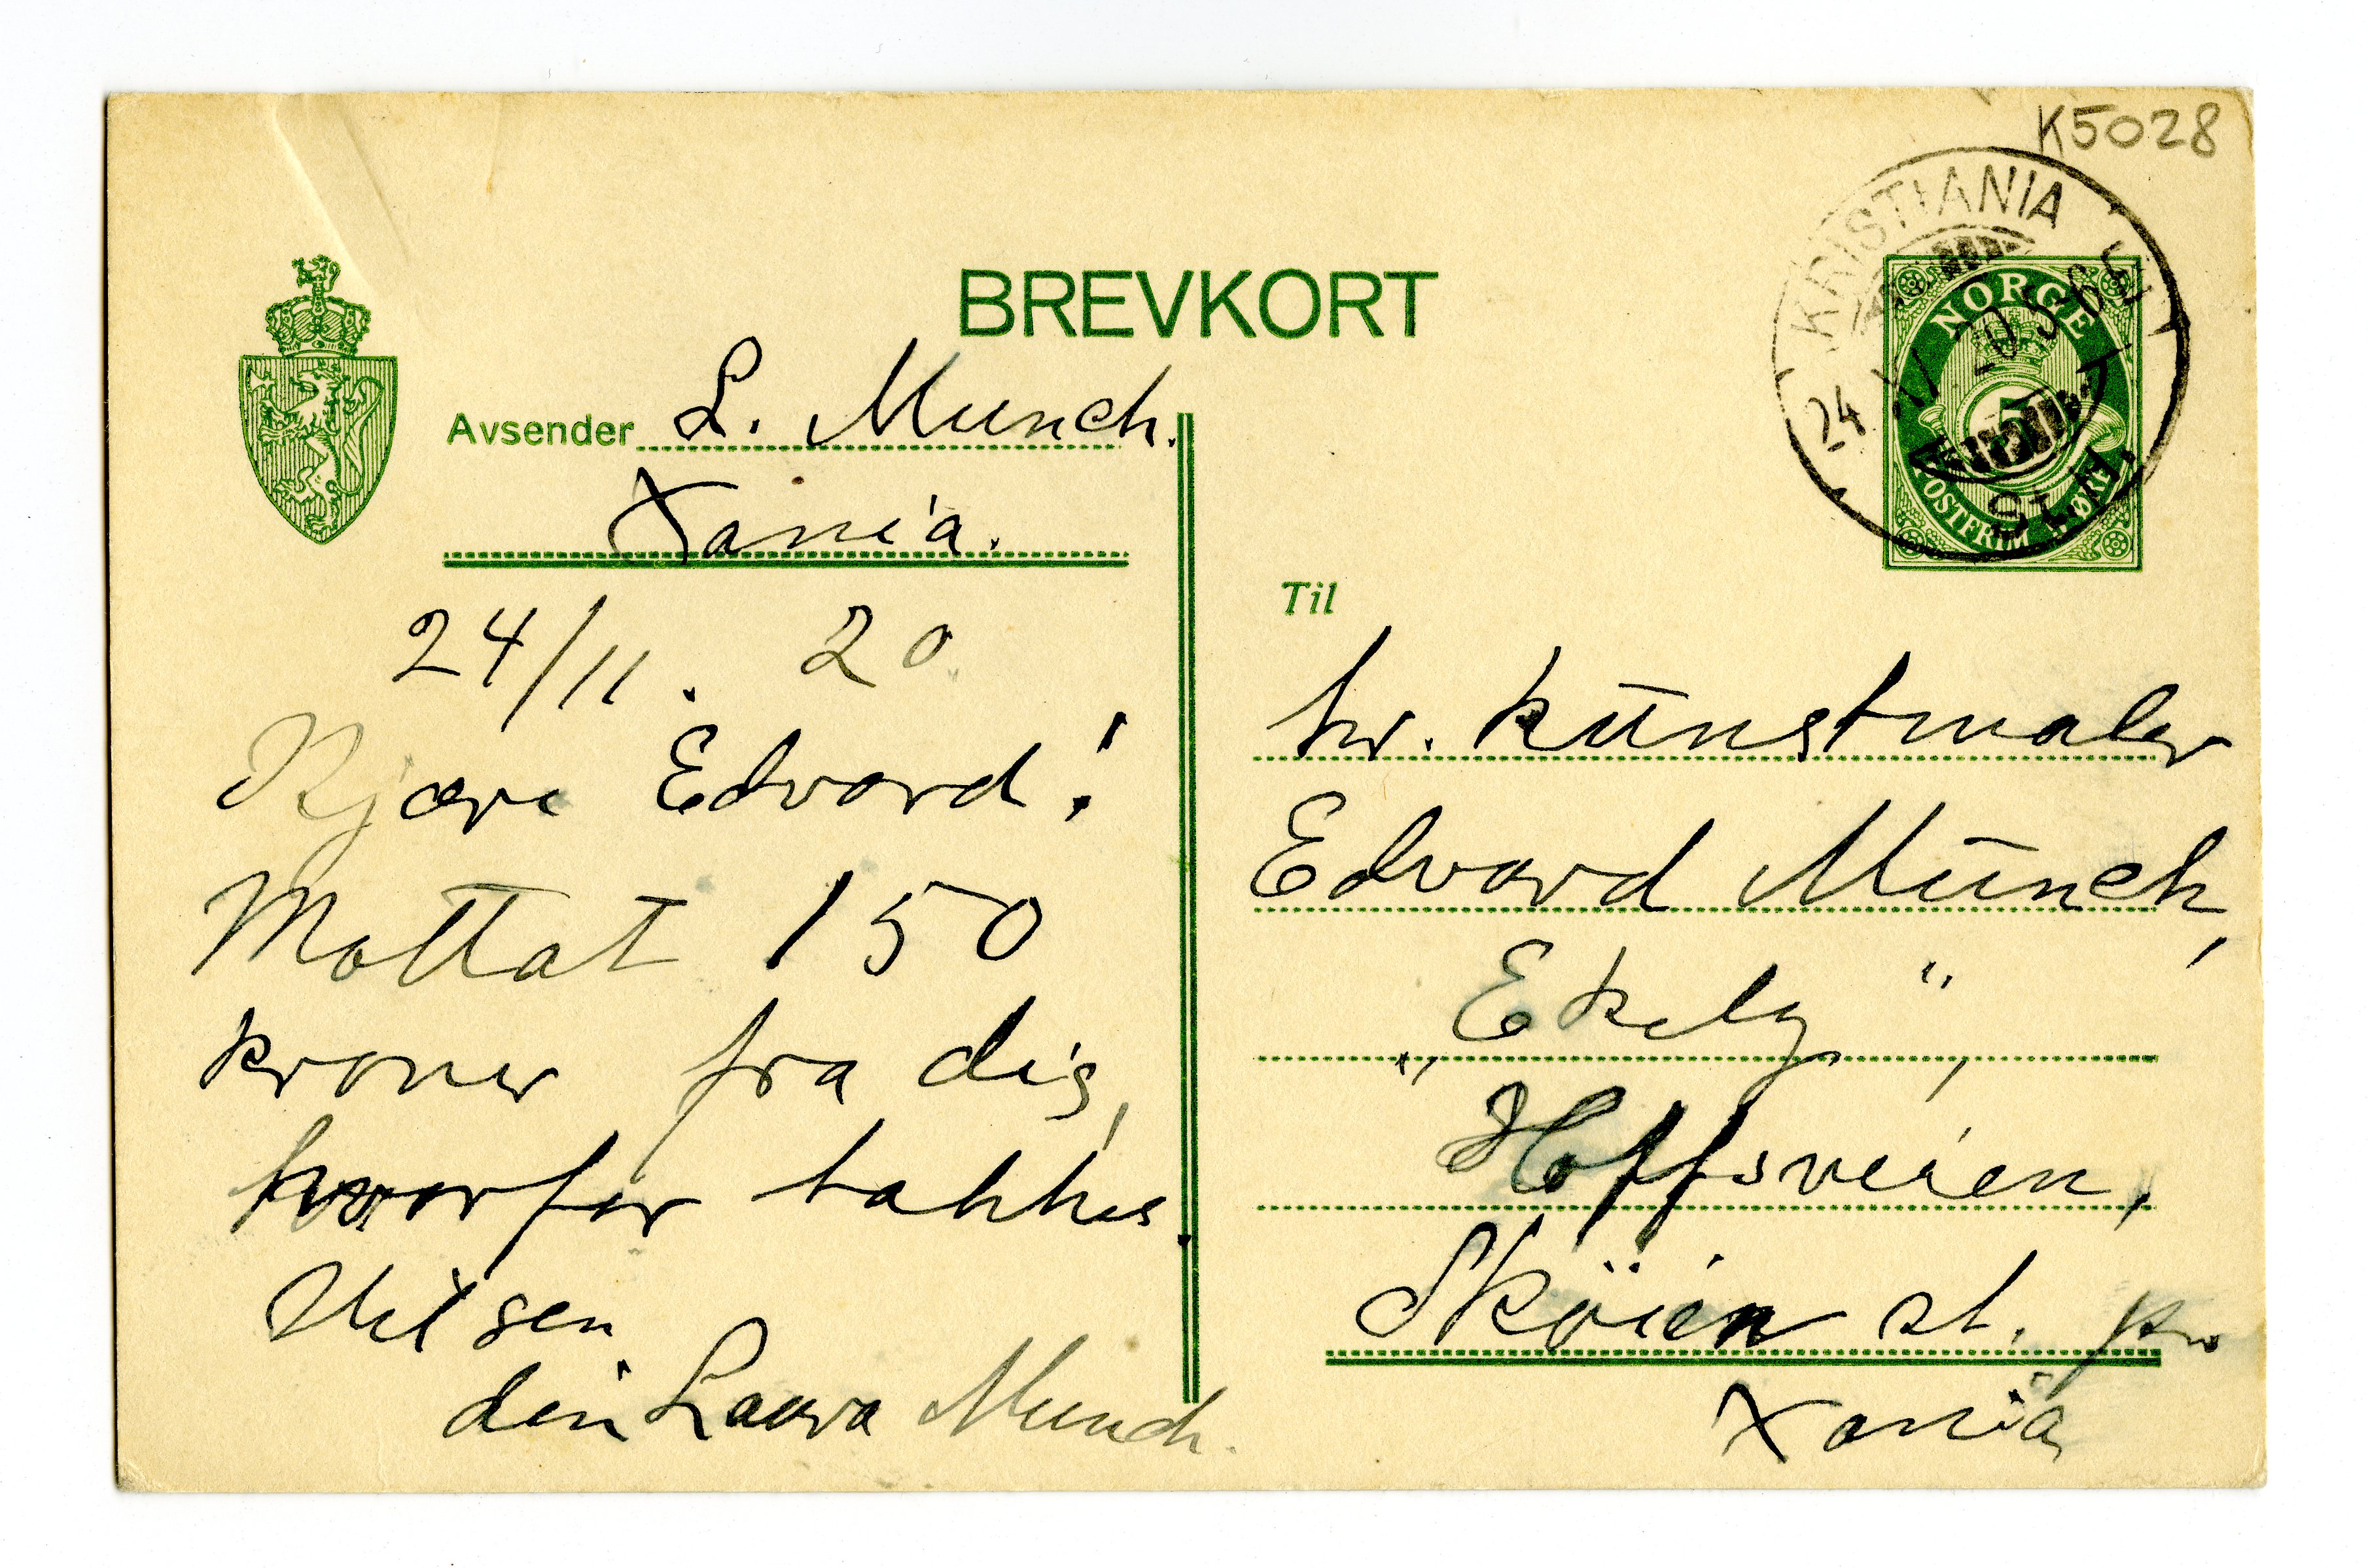 K5028
BREVKORT
KRISTIANIA
24 XI 20 5-6 E
ST. A.
NORGE
5
POSTFRIM. 5 ØRE
Avsender L. Munch.
Xania.
24/11. 20
Kjære Edvard!
Mottat 150
kroner fra dig,
hvorfor takkes.
Hilsen
din Laura Munch.
Til
hr. kunstmaler
Edvard Munch,
„Ekely",
Hoffsveien,
Sköien st. pr
Xania